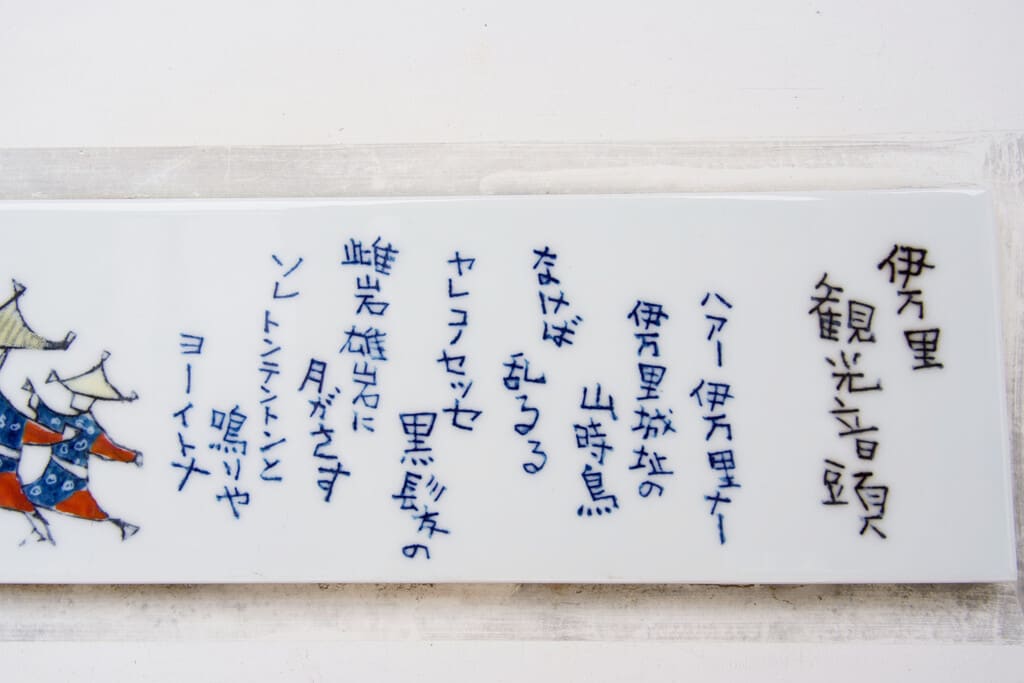 伊万里
観光音頭
ハアー伊万里ナー
伊万里城址の
山時鳥
なけば
乱るる
ヤレコノセッセ
黒髪の
雌岩雄岩に
月がさす
ソレトンテントンと
鳴りや
ヨーイトナ